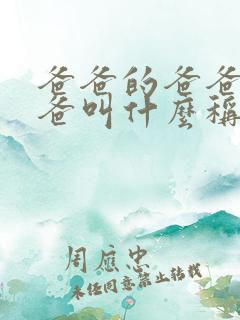 爸爸的爸爸
爸叫什麼稱
周應忠
未經同意禁止轉載